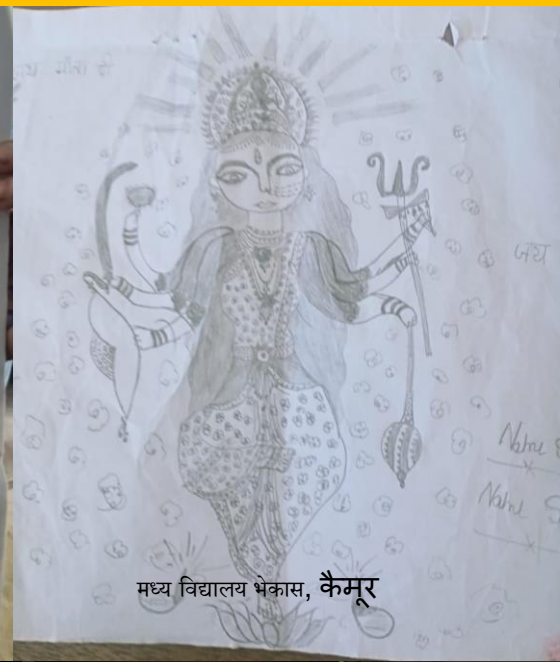 जय माता दी
जय
Name
Name
मध्य विद्यालय भेकास, कैमूर